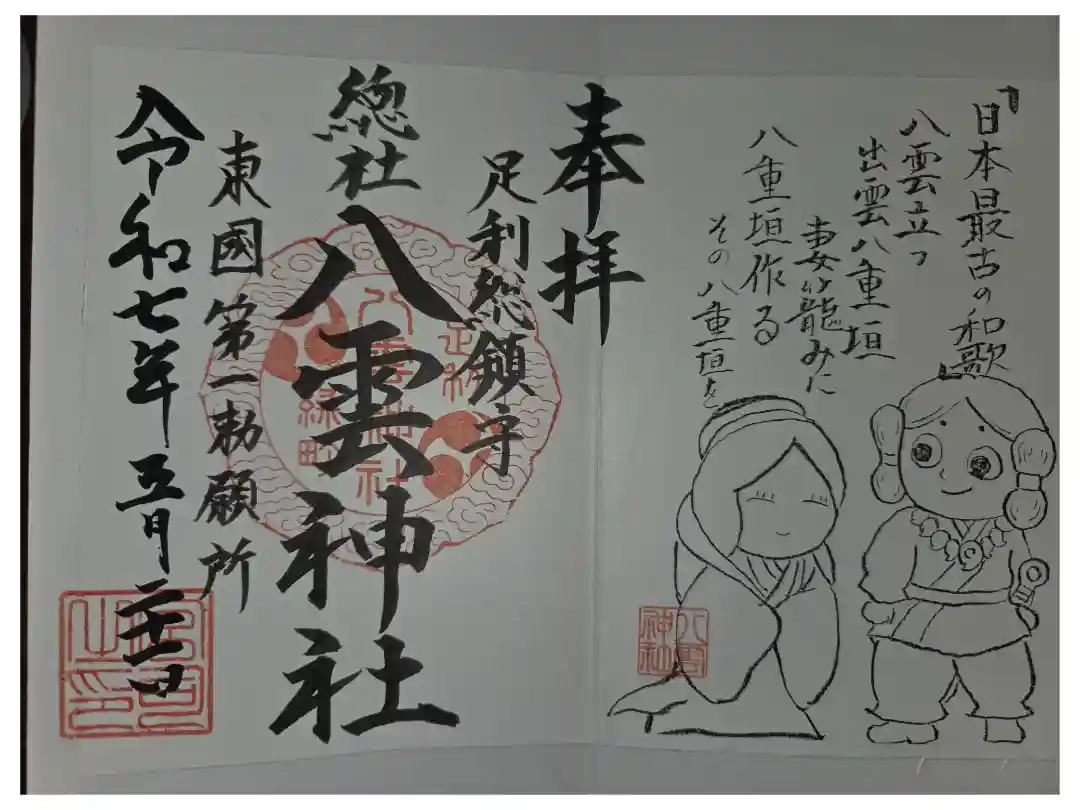 「日本最古の和歌」
八雲立つ
出雲八重垣
妻籠みに
八重垣作る
その八重垣を
八雲
神社
奉拝
足利総鎮守
總社
八雲神社
東國第一勅願所
令和七年五月二十一日
八雲神社
緑町